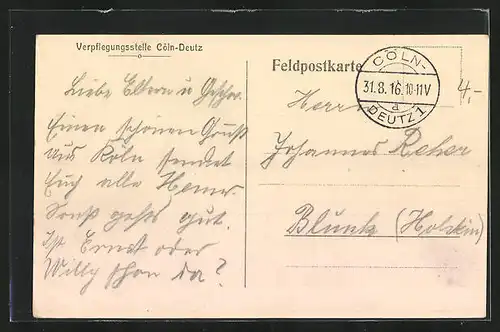 Verpflegungsstelle Cöln-Deutz
Liebe Eltern u. Geschw.
Einen schönen Gruß
aus Köln sendet
Euch alle
Sonst gehts gut.
Ist Ernst oder
Willy schon da?
Feldpostkarte
CÖLN-
31.8.16.10-11V
a
DEUTZ 1
4,-
Herrn
Johannes
Blunk (Holstein)